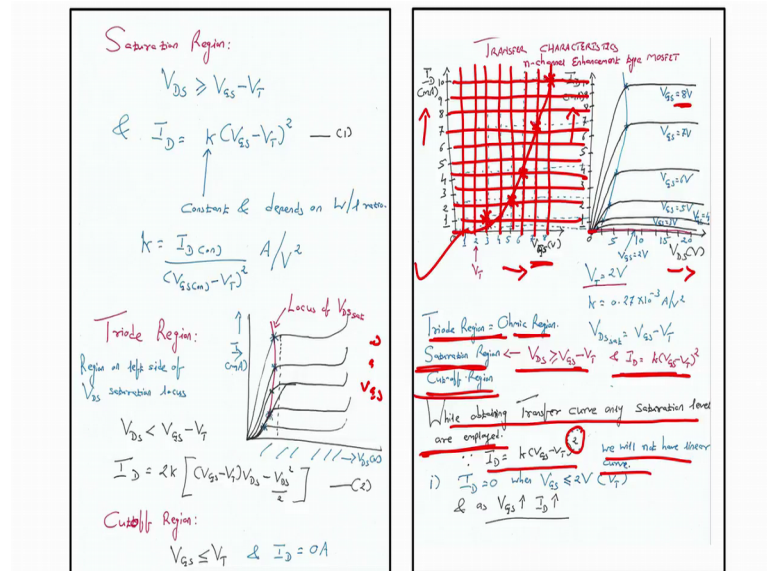 Saturation Region:
V_DS ≥ V_GS - V_T
& I_D = k (V_GS - V_T)² —(1)
Constant & depends on W/L ratio.
k = I_D(on) / (V_GS(on) - V_T)² A/V²
Locus of V_DSsat
Triode Region:
Region on left side of
V_DS saturation locus
I_D
(mA)
V_GS
V_DS(V)
V_DS < V_GS - V_T
I_D = 2k [(V_GS - V_T) V_DS - V_DS²/2] —(2)
Cutoff Region:
V_GS ≤ V_T & I_D = 0A
TRANSFER CHARACTERISTICS
n-channel Enhancement type MOSFET
I_D
(mA)
10
9
8
7
6
5
4
3
2
1
1 2 3 4 5 6 7 8
V_GS(V)
V_T
I_D
V_GS=8V
V_GS=7V
V_GS=6V
V_GS=5V
V_GS=3V
V_GS=2V
5 10 15 20
V_DS(V)
V_T = 2V
k = 0.27 X10⁻³ A/V²
V_DSsat = V_GS - V_T
Triode Region = Ohmic Region.
Saturation Region ← V_DS ≥ V_GS - V_T & I_D = k(V_GS - V_T)²
Cut-off Region
While obtaining Transfer curve only Saturation level
are employed.
∵ I_D = k (V_GS - V_T)² we will not have linear
curve.
1) I_D = 0 when V_GS ≤ 2V (V_T)
& as V_GS ↑ I_D ↑